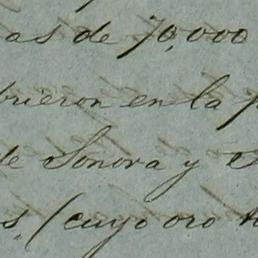 as de 70,000
brieron en la p
de Sonora y S
s, (cuyo oro h